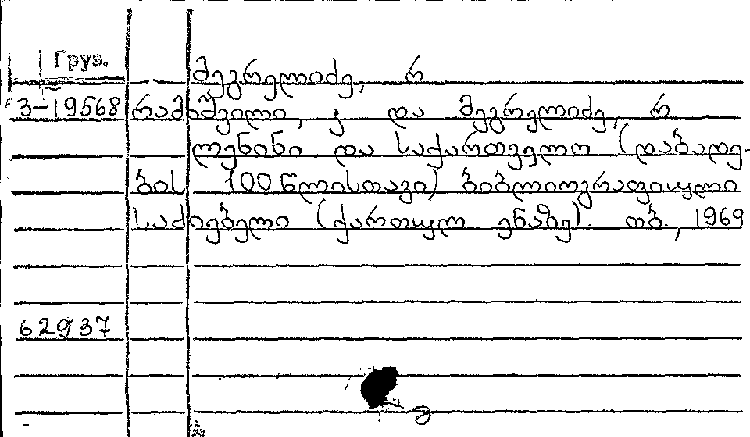 Груз.
მეგრელიძე, რ
3-19568 რამიშვილი, კ და მეგრელიძე, რ.
ლენინი და საქართველო (დაბადე-
ბის 100 წლისთავი) ბიბლიოგრაფიული
საძიებელი (ქართულ ენაზე). თბ., 1969
62937